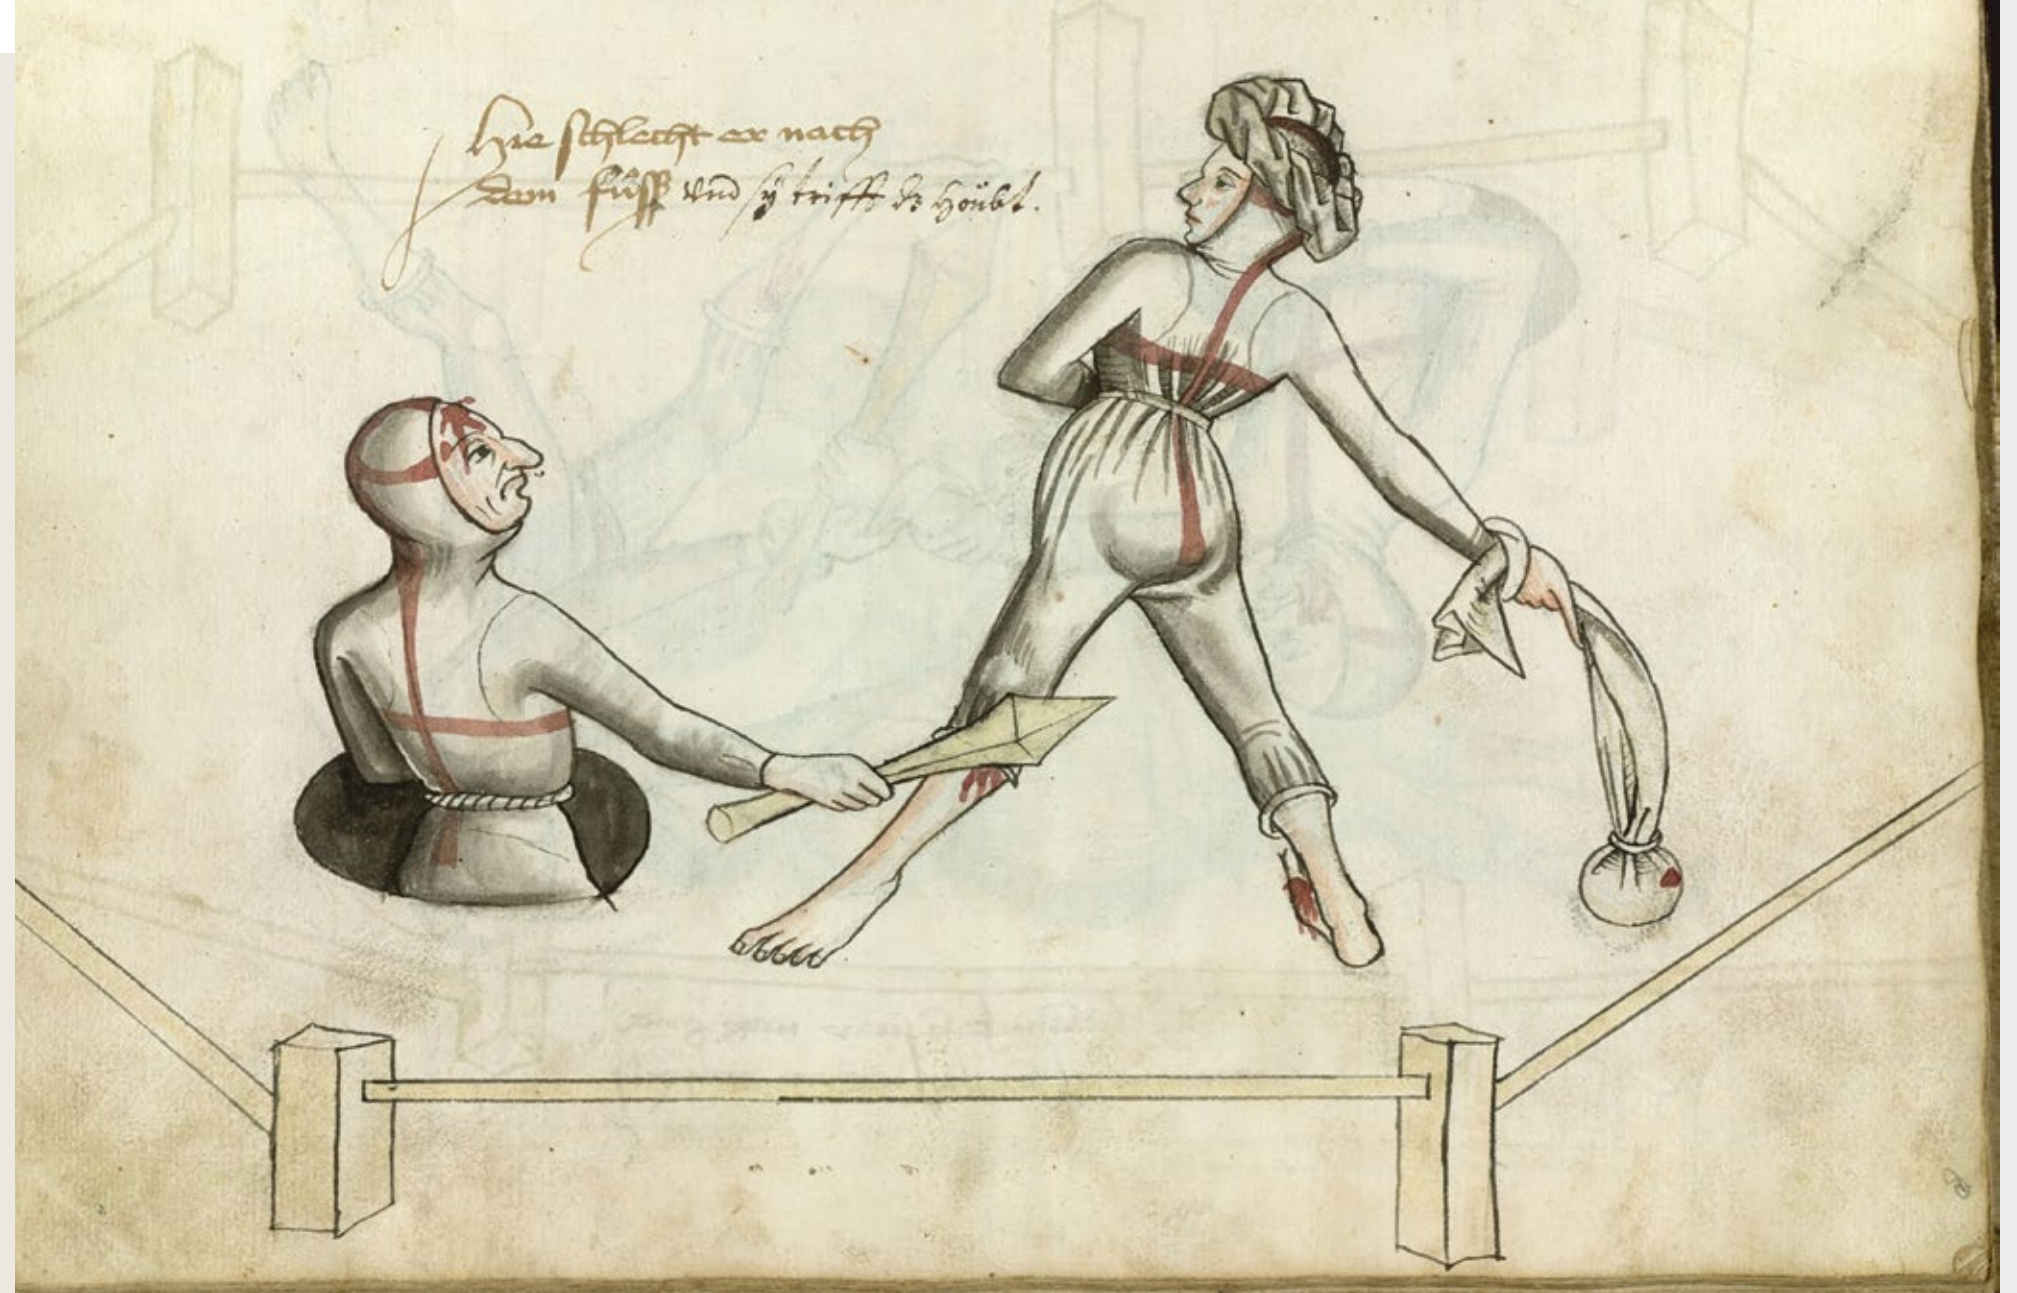 Hie schlecht er nach
dem fůsß vnd sÿ trifft dz höubt.